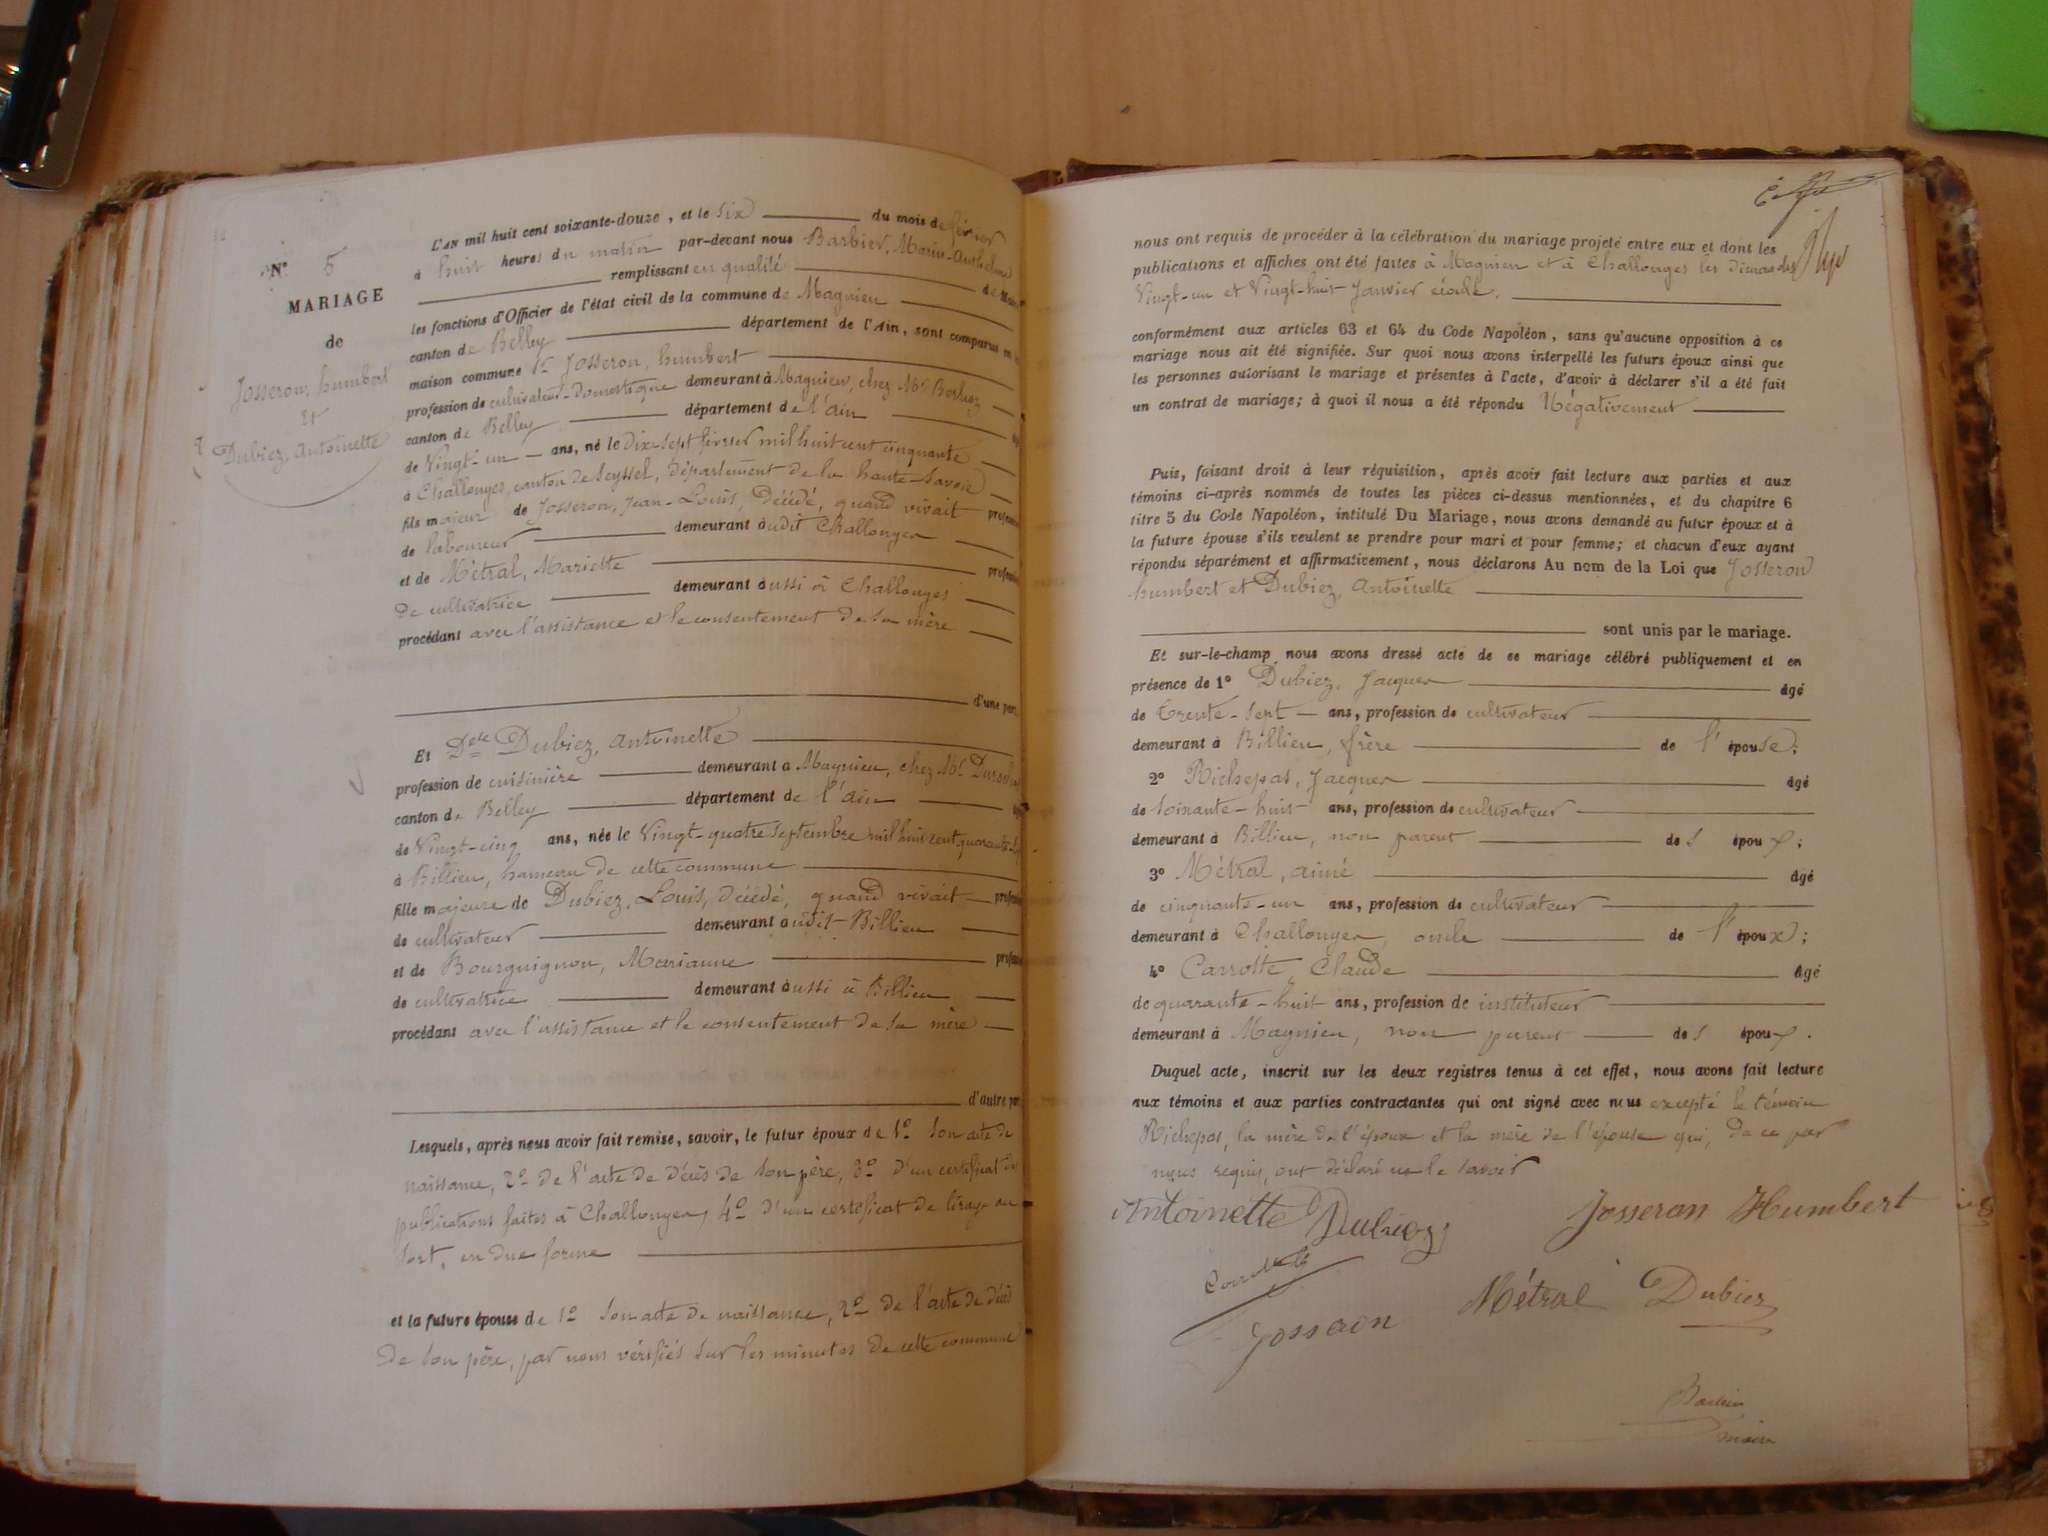 Nº 5
MARIAGE
de
Josseron, humbert
Et
Dubiez, Antoinette
L'AN mil huit cent soixante-douze, et le Six du mois de février
à huit heures du matin par-devant nous Barbier, Marius-Anthelme
remplissant en qualité de
les fonctions d'Officier de l'état civil de la commune de Magnieu
canton de Belley département de l'Ain, sont comparus en
maison commune 1º Josseron, humbert
profession de cultivateur-domestique demeurant à Magnieu, chez Mr
canton de Belley département de l'ain
de Vingt-un ans, né le dix-sept février mil huit cent cinquante
à Challonges, canton de Seyssel, Département de la haute-Savoie
fils majeur de Josseron, Jean-Louis, Décédé, quand vivait
de laboureur demeurant audit Challonges
et de Métral, Mariette
de cultivatrice demeurant aussi à Challonges
procédant avec l'assistance et le consentement de sa mère
d'une part.
Et Delle Dubiez, Antoinette
profession de cuisinière demeurant à Magnieu, chez Mr
canton de Belley département de l'ain
de Vingt-cinq ans, née le Vingt-quatre Septembre mil huit cent quarante
à Billieu, hameau de cette commune
fille majeure de Dubiez, Louis, décédé, quand vivait
de cultivateur demeurant audit Billieu
et de Bourguignon, Marianne
de cultivatrice demeurant aussi à Billieu
procédant avec l'assistance et le consentement de sa mère
d'autre part
Lesquels, après nous avoir fait remise, savoir, le futur époux de 1º Son acte de
naissance, 2º de l'acte de décès de son père, 3º d'un certificat de
publications faites à Challonges, 4º d'un certificat de tirage au
Sort, en due forme
et la future épouse de 1º Son acte de naissance, 2º de l'acte de décès
de son père, par nous vérifiés sur les minutes de cette commune
nous ont requis de procéder à la célébration du mariage projeté entre eux et dont les
publications et affiches ont été faites à Magnieu et à Challonges les Dimanches
Vingt-un et Vingt-huit Janvier écoulé.
conformément aux articles 63 et 64 du Code Napoléon, sans qu'aucune opposition à ce
mariage nous ait été signifiée. Sur quoi nous avons interpellé les futurs époux ainsi que
les personnes autorisant le mariage et présentes à l'acte, d'avoir à déclarer s'il a été fait
un contrat de mariage; à quoi il nous a été répondu Négativement
Puis, faisant droit à leur réquisition, après avoir fait lecture aux parties et aux
témoins ci-après nommés de toutes les pièces ci-dessus mentionnées, et du chapitre 6
titre 5 du Code Napoléon, intitulé Du Mariage, nous avons demandé au futur époux et à
la future épouse s'ils veulent se prendre pour mari et pour femme; et chacun d'eux ayant
répondu séparément et affirmativement, nous déclarons Au nom de la Loi que Josseron
humbert et Dubiez, Antoinette
sont unis par le mariage.
Et sur-le-champ nous avons dressé acte de ce mariage célébré publiquement et en
présence de 1º Dubiez, Jacques âgé
de Trente-sept ans, profession de cultivateur
demeurant à Billieu, frère de l'épouse;
2º Richepas, Jacques âgé
de soixante-huit ans, profession de cultivateur
demeurant à Billieu, non parent des époux;
3º Métral, aimé âgé
de cinquante-un ans, profession de cultivateur
demeurant à Challonges, oncle de l'époux;
4º Carrotte, Claude âgé
de quarante-huit ans, profession de instituteur
demeurant à Magnieu, non parent des époux.
Duquel acte, inscrit sur les deux registres tenus à cet effet, nous avons fait lecture
aux témoins et aux parties contractantes qui ont signé avec nous excepté le témoin
Richepas, la mère de l'époux et la mère de l'épouse qui, de ce par
nous requis, ont déclaré ne le savoir
Antoinette Dubiez Josseran Humbert
Métral Dubiez
Josseron
Barbier
maire